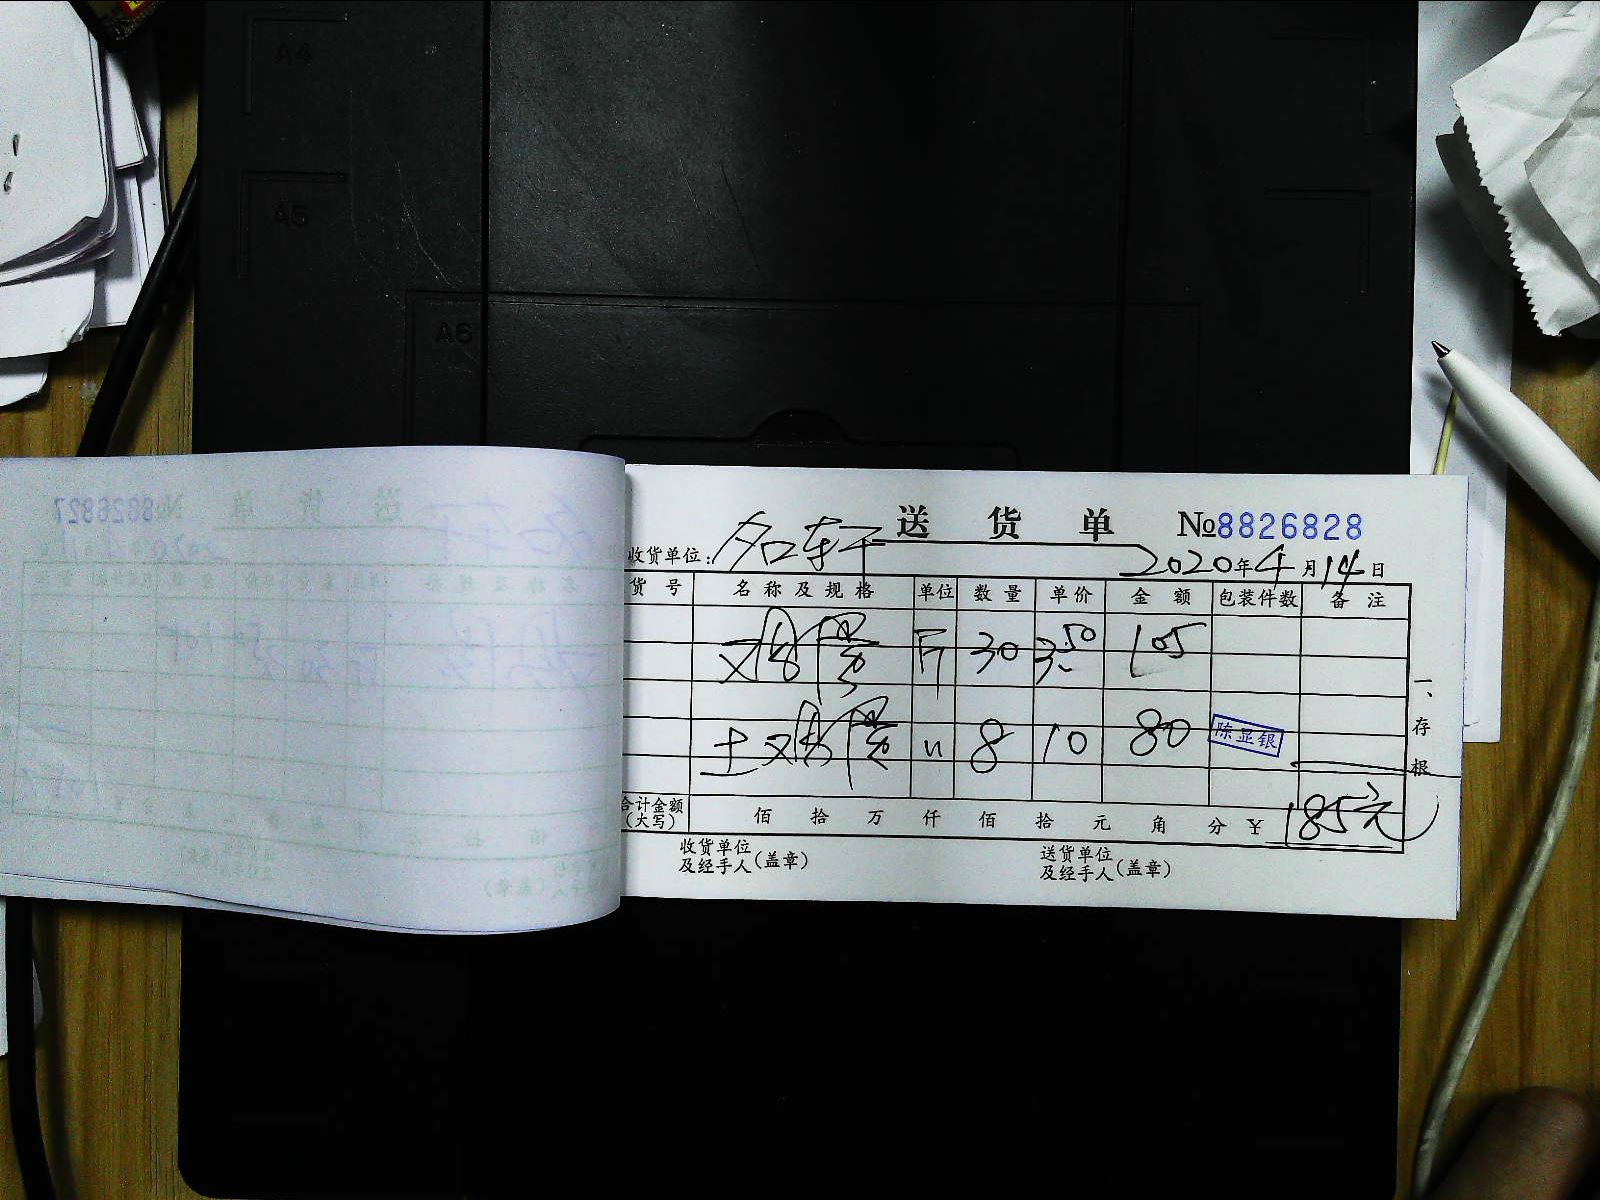 A4
A5
A6
送 货 单 №8826828
收货单位: 名轩
2020年4月14日
货号 名称及规格 单位 数量 单价 金额 包装件数 备注
又鸡蛋 斤 30 3.50 105
土又鸡蛋 〃 8 10 80 陈显银
合计金额(大写) 佰 拾 万 仟 佰 拾 元 角 分 ¥ 185元
收货单位及经手人(盖章) 送货单位及经手人(盖章)
一、存根